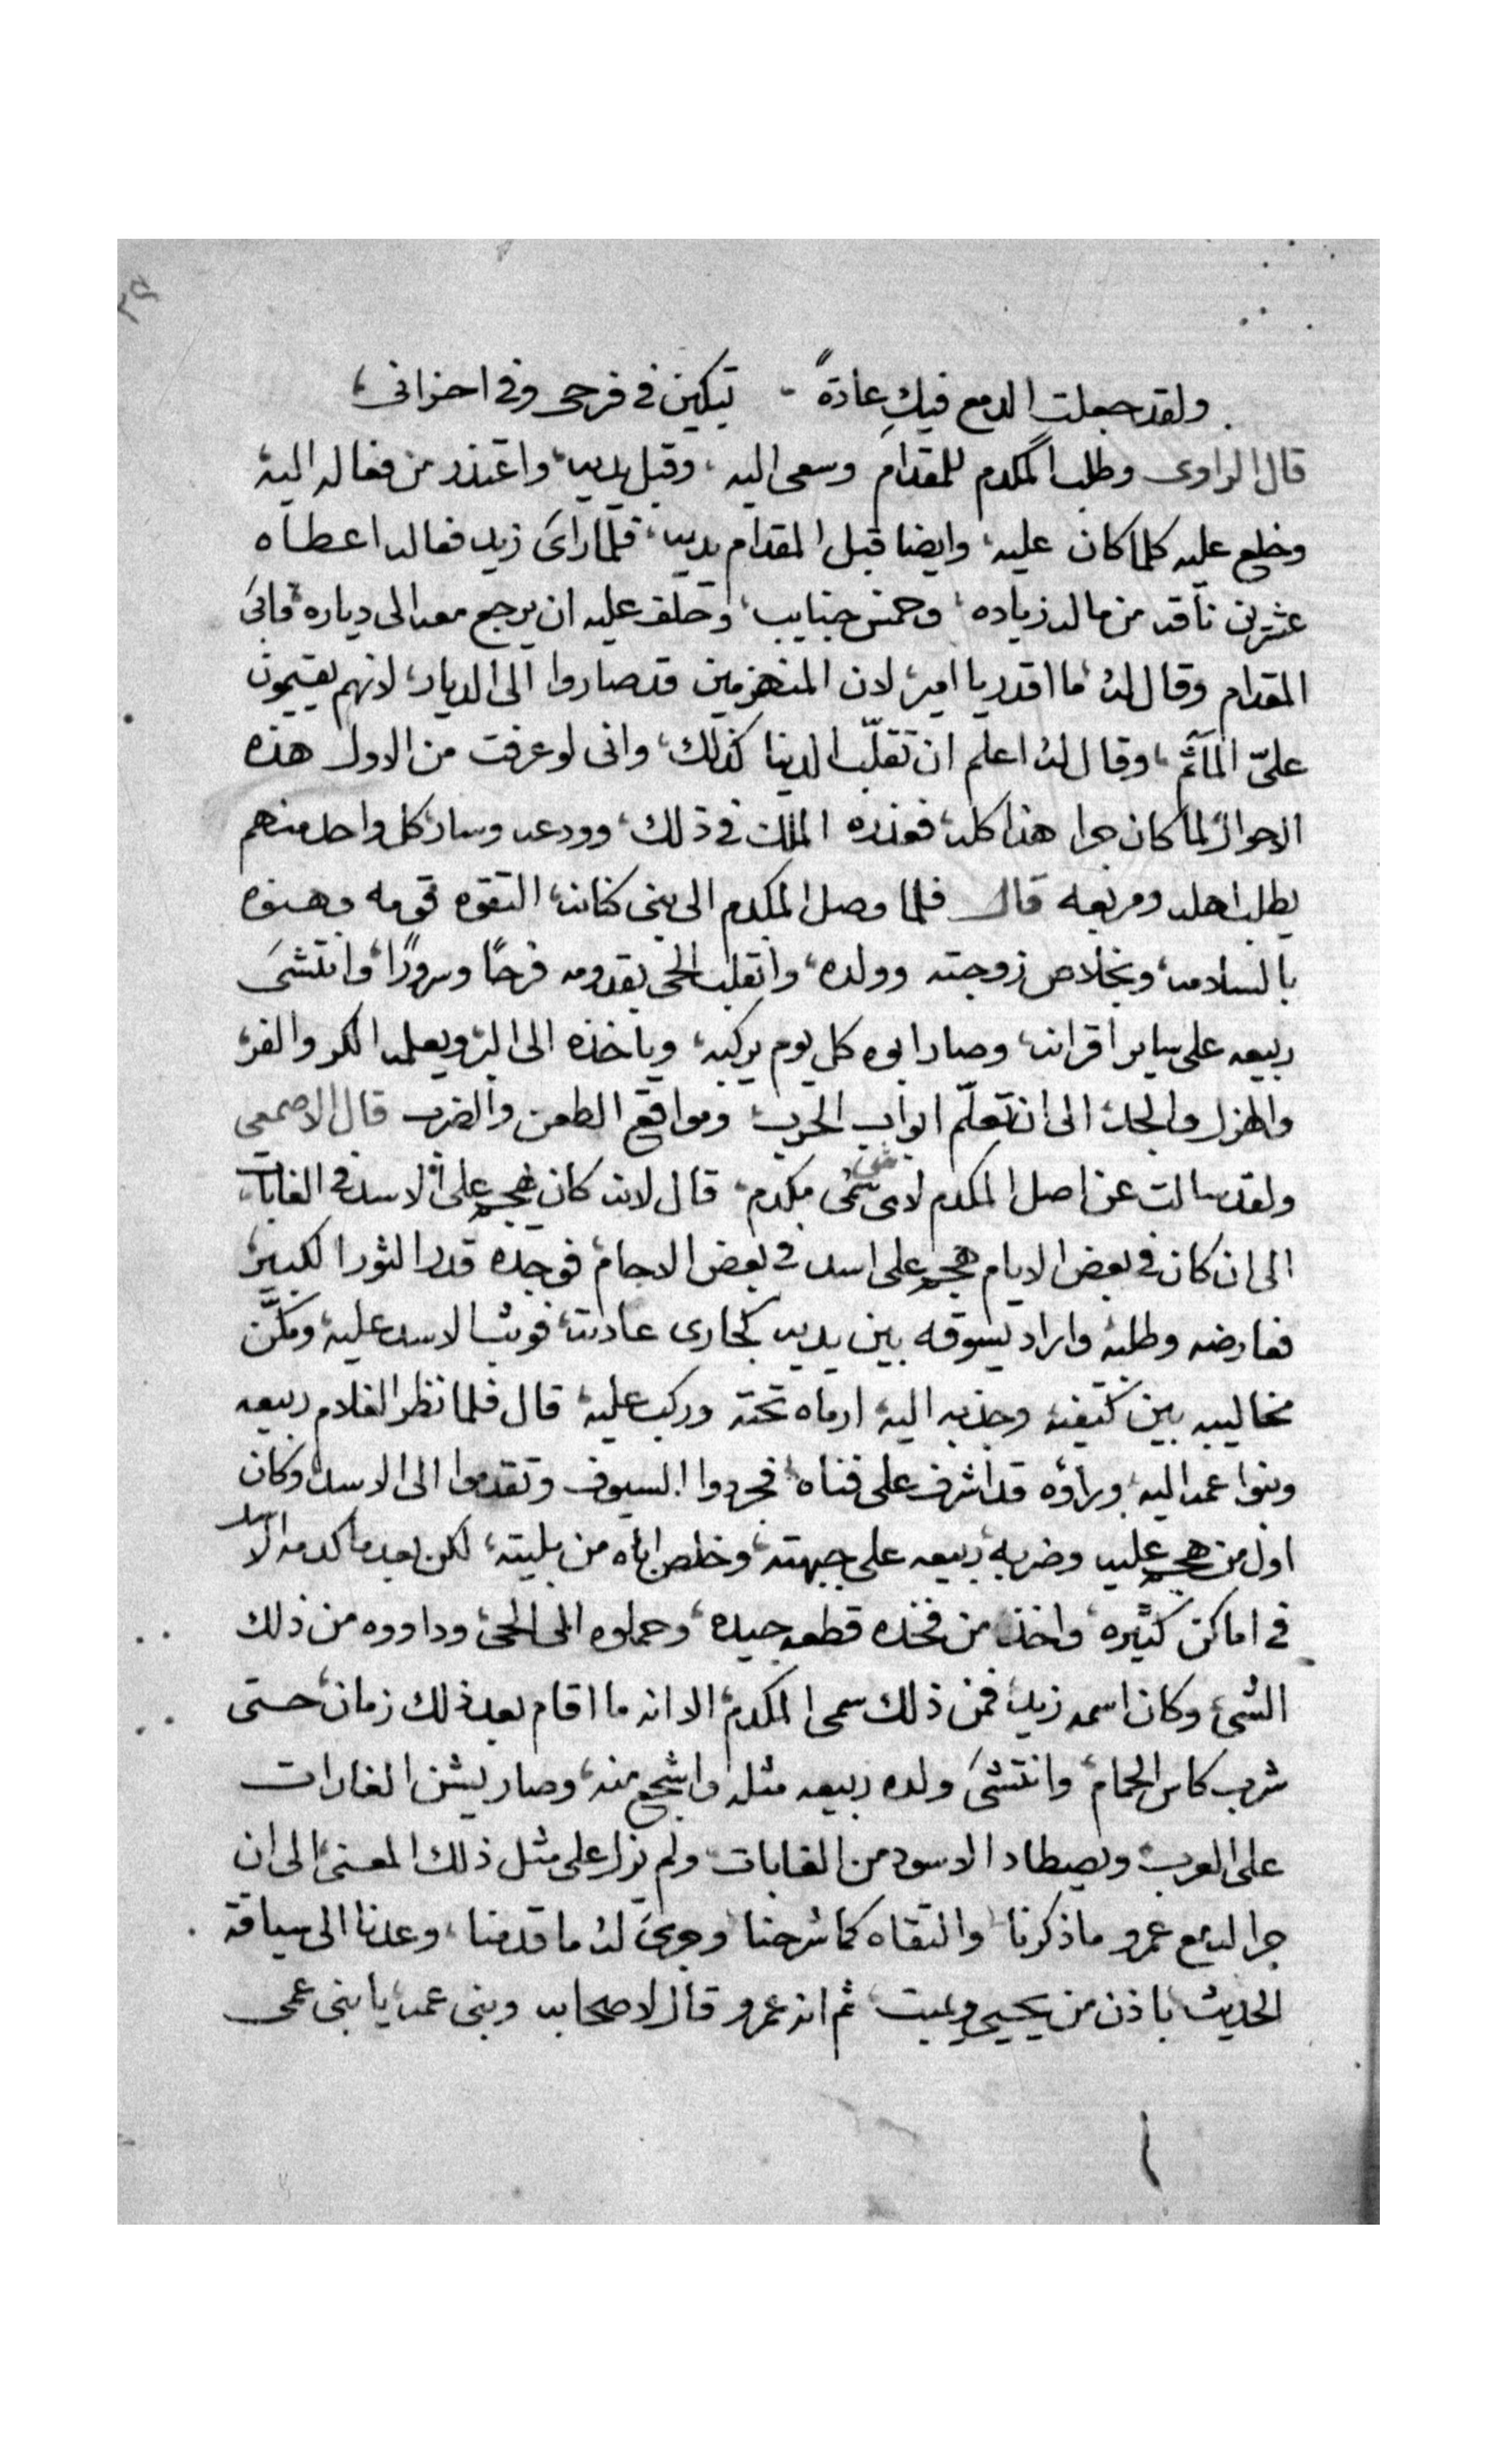 ولقد جعلت الدمع فيكِ عادةً - تبكين فى فرحى وفى احزانى،
قال الراوى وطلب المكدم للمقدام وسعى اليه، وقبل يديه، واعتذر من فعاله اليه
وخلع عليه كلما كان عليه، وايضا قبل المقدام يديه، فلما راىَ زيد فعاله اعطاه
عشرين ناقه من ماله زياده، وخمس جنايب، وحلف عليه ان يرجع معه الى دياره، فابىَ
المقدام وقال له، ما اقدر يا امير، لان المنهزمين قد صاروا الى الديار، لانهم يقيمون
علىّ المآتم، وقال له اعلم ان تقلّب الدينا كذلك، وانى لو عرفت من الاول هذه
الاحوال لما كان جرا هذا كله، فعذره الملك فى ذلك، وودعه وسار كل واحد منهم
يطلب اهله ومربعه قال فلما وصل المكدم الى بنى كنانه، التقوه قومه وهنوه
بالسلامه، وبخلاص زوجته وولده، وانقلب الحى بقدومه فرحًا وسرورًا، وانتشىَ
ربيعه على ساير اقرانه، وصار ابوه كل يوم يركبه، وياخذه الى البر ويعلمه الكر والفر،
والهزل والجد، الى ان تعلّم ابواب الحرب، ومواقع الطعن والضرب قال الاصمعي
ولقد سالت عن اصل المكدم لاى شى سمى مكدم، قال لانه كان يهجم على الاسد فى الغابات،
الى ان كان فى بعض الايام هجم على اسد فى بعض الاجام، فوجده قدر الثور الكبير،
فعارضه وطلبه واراد يسوقه بين يديه كجارى عادته، فوثب الاسد عليه، ومكَّن
مخاليبه بين كتيفيه وجذبه اليه، ارماه تحته وركب عليه، قال فلما نظر الغلام ربيعه
وبنوا عمه اليه، وراوه قد اشرف على فناه، فجردوا السيوف وتقدموا الى الاسد، وكان
اول من هجم عليه وضربه ربيعه على جبهته، وخلص اباه من بليته، لكن بعد ما كدمه الاسد
فى اماكن كثيره، واخذ من فخذه قطعه جيده، وحملوه الى الحى، وداووه من ذلك
الشىء وكان اسمه زيد، فمن ذلك سمى المكدم، الا انه ما اقام بعد ذلك زمان، حتى
شرب كاس الحمام، وانتشىَ ولده ربيعه مثله واشجع منه، وصار يشن الغارات
على العرب، ويصطاد الاسود من الغابات، ولم يزل على مثل ذلك المعنى، الى ان
جرا له مع عمرو ما ذكرنا، والتقاه كما شرحنا، وجرىَ له ما قدمنا، وعدنا الى سياقة
الحديث، باذن من يحيى ويميت، ثم ان عمرو قال لاصحابه وبنى عمه، يا بنى عمى